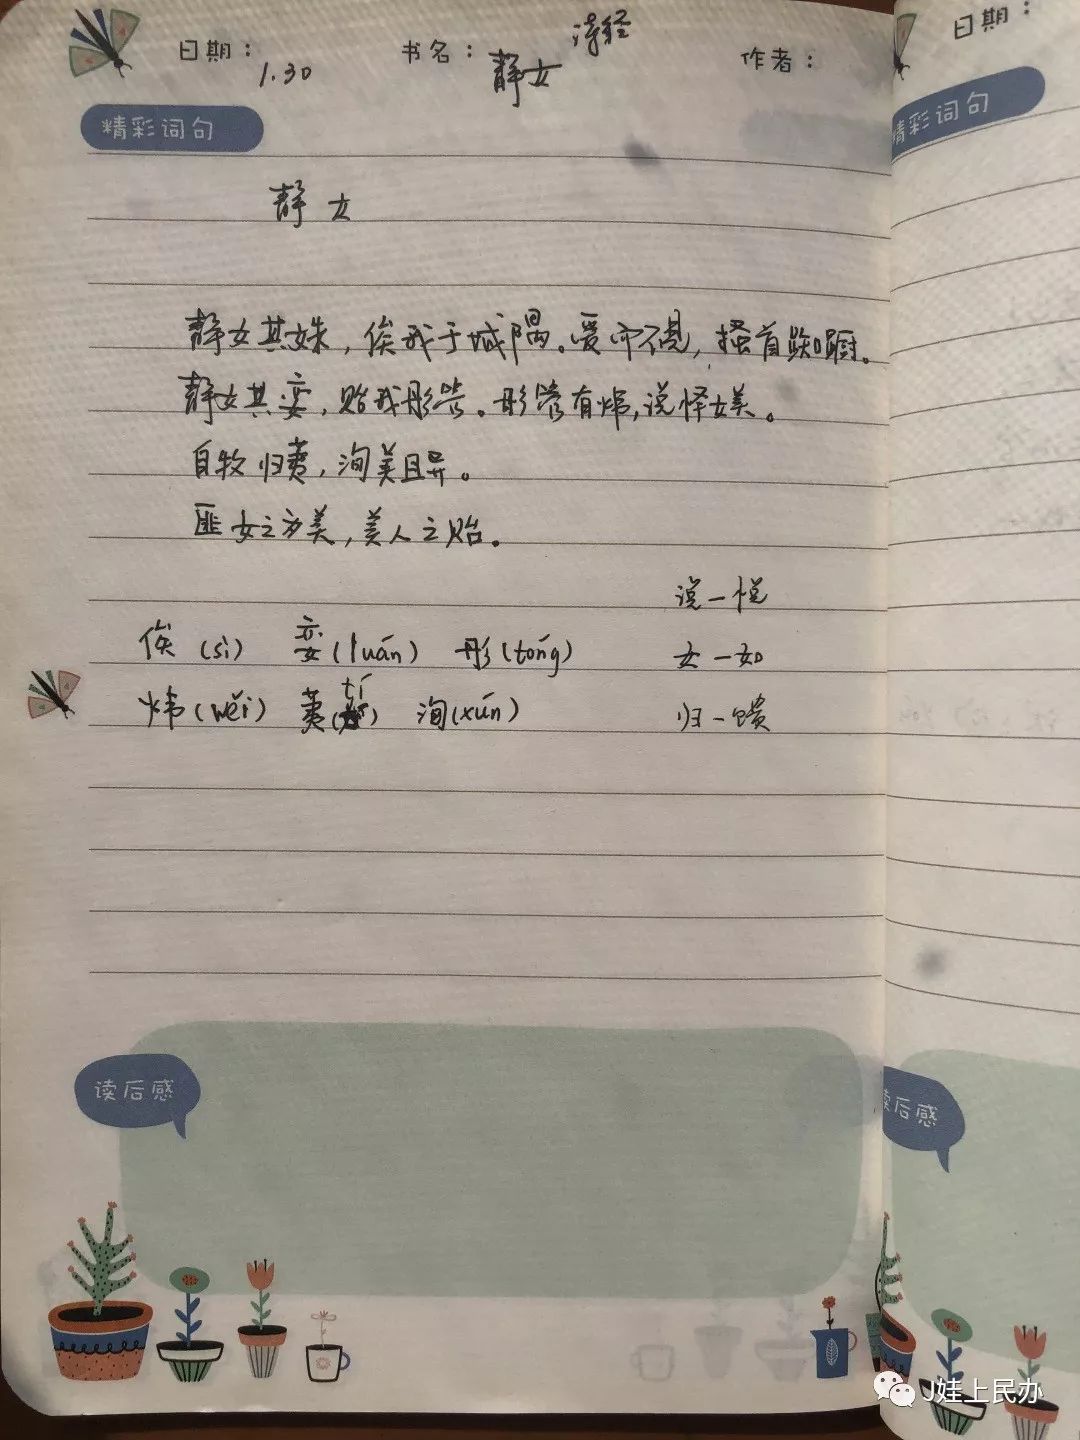 日期： 1.30 书名： 静女 诗经 作者：
精彩词句
静女
静女其姝，俟我于城隅。爱而不见，搔首踟蹰。
静女其娈，贻我彤管。彤管有炜，说怿女美。
自牧归荑，洵美且异。
匪女之为美，美人之贻。
说一悦
俟（sì） 娈（luán） 彤（tóng） 女一如
炜（wěi） 荑（tí） 洵（xún） 归一馈
读后感
日期：
精彩词句
读后感
J娃上民办